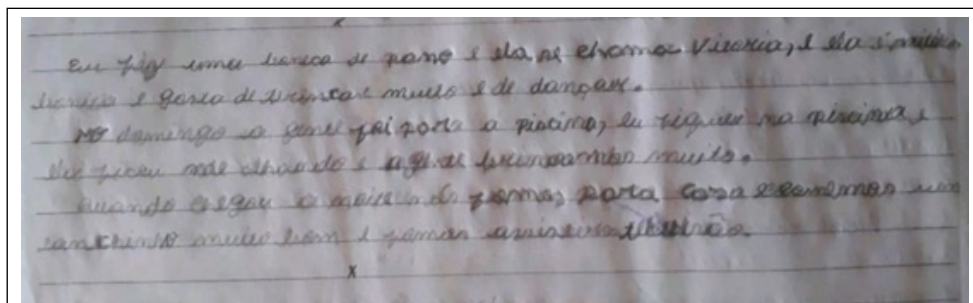 Eu fiz uma boneca de pano e ela se chama Vitoria, e ela é muito
bonita e gosta de brincar muito e de dançar.
No domingo a gente foi para a piscina, eu fiquei na piscina e
ela ficou me olhando e a gente brincamos muito.
Quando chegou a noite nós fomos para casa e comemos um
lanchinho muito bom e fomos assistir
x